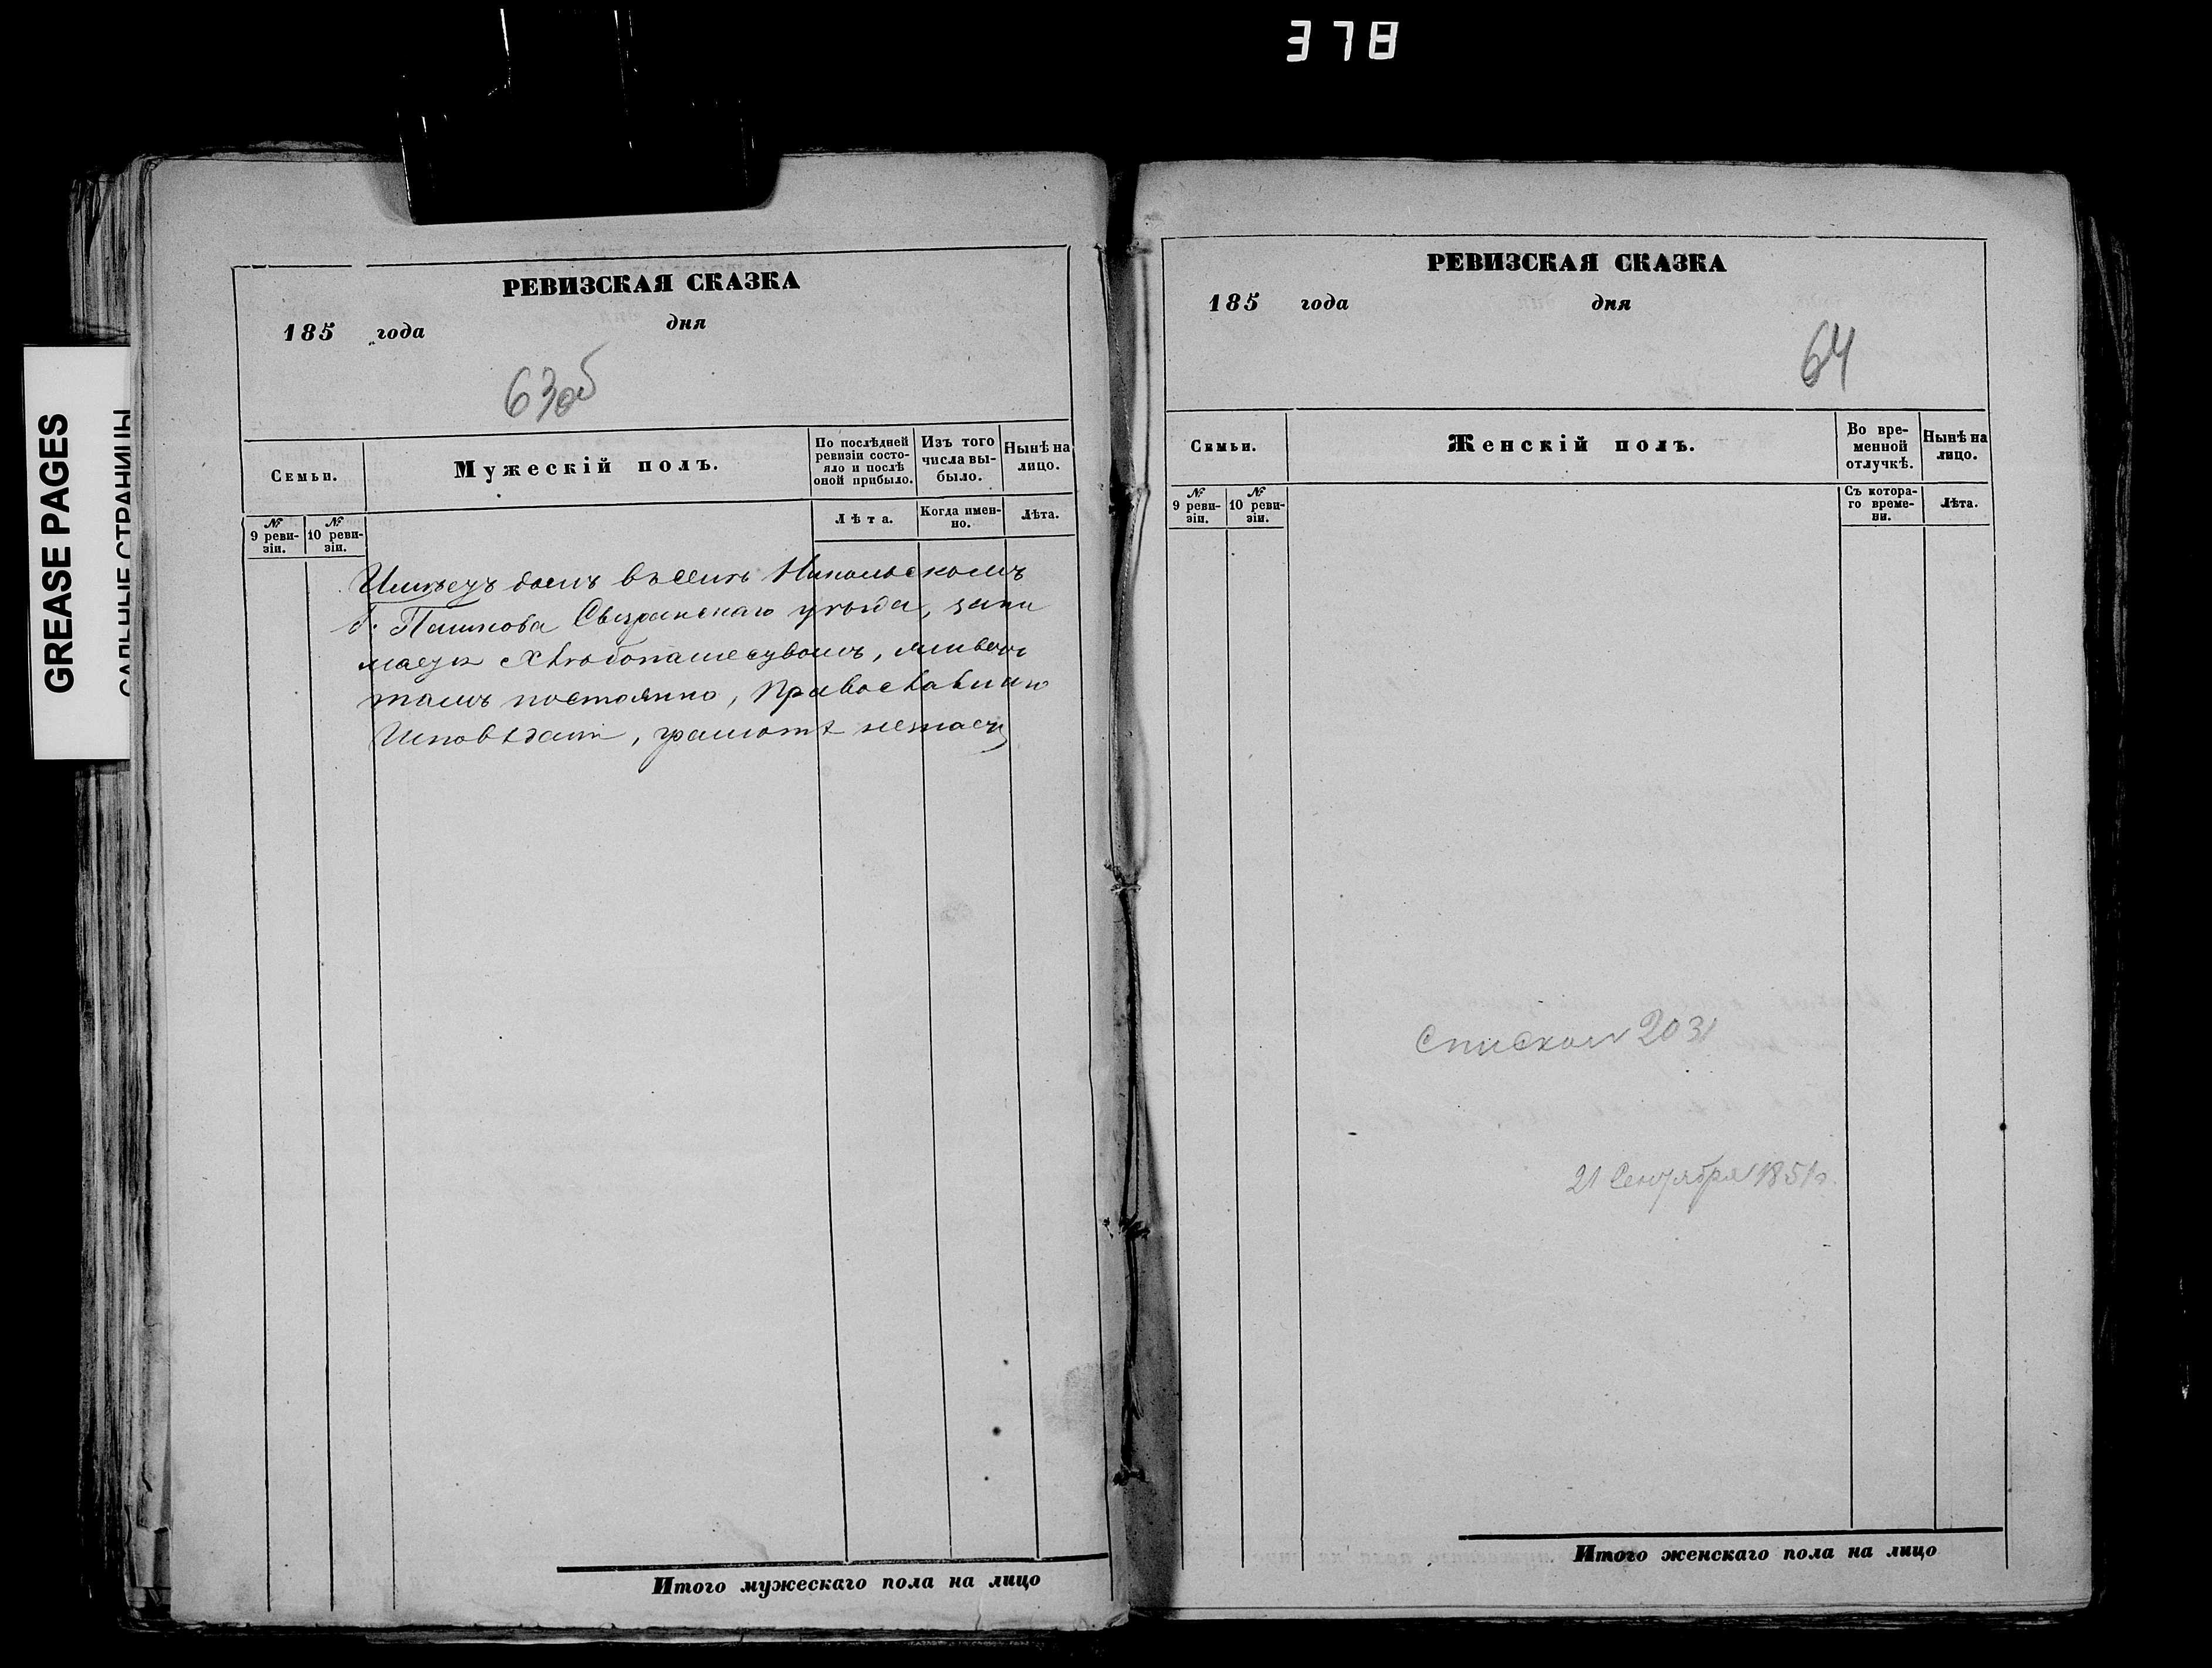 378
GREASE PAGES
РЕВИЗСКАЯ СКАЗКА
185 года дня
63об
Семьи.
Мужескій полъ.
По послѣдней ревизіи состояло и послѣ оной прибыло.
Изъ того числа выбыло.
Нынѣ на лицо.
№ 9 ревизіи.
№ 10 ревизіи.
Лѣта.
Когда именно.
Лѣта.
Имѣетъ домъ въ селѣ Никольскомъ
Пашкова Сызранскаго уѣзда, зани
маетъ хлѣбопашествомъ, живетъ
тамъ постоянно, Православнаго
Исповѣдан, грамотѣ незнаетъ
Итого мужескаго пола на лицо
РЕВИЗСКАЯ СКАЗКА
185 года дня
64
Семьи.
Женскій полъ.
Во временной отлучкѣ.
Нынѣ на лицо.
№ 9 ревизіи.
№ 10 ревизіи.
Съ котораго времени.
Лѣта.
Списком 203
21 Сентября 1851г.
Итого женскаго пола на лицо